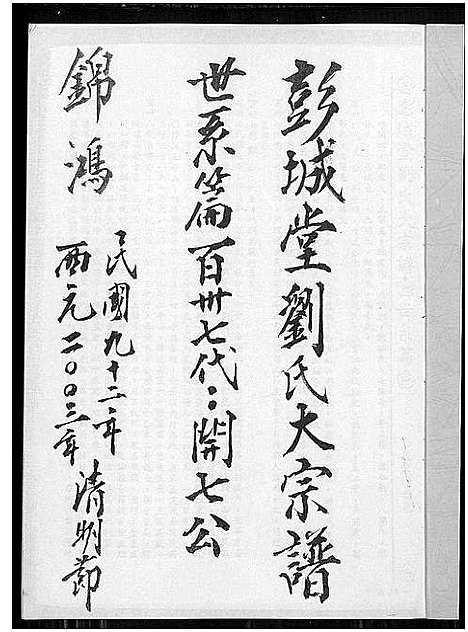 彭城堂劉氏大宗譜
世系篇百卅七代：開七公
錦鴻
民國九十二年
西元二〇〇三年清明節